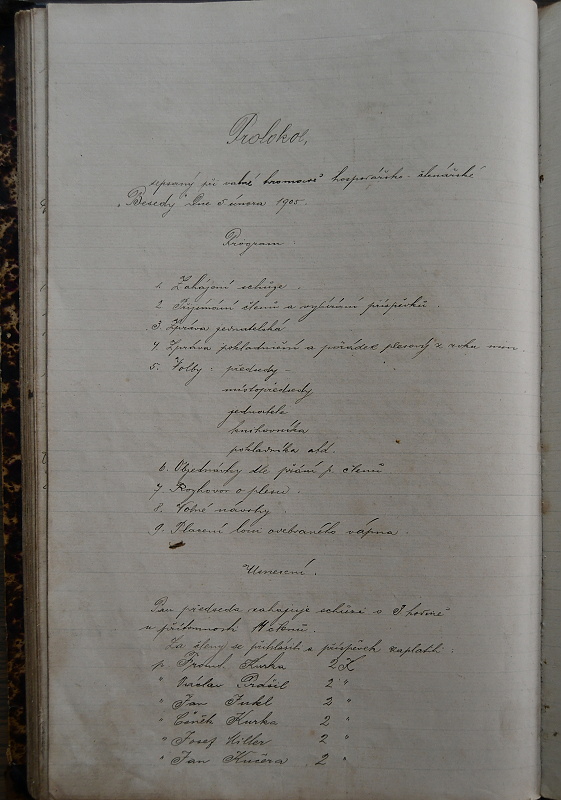 Protokol,
sepsaný při valné hromadě hospodářsko-čtenářské
„Besedy" Dne 5 února 1905.
Program:
1. Zahájení schůze.
2. Přijímání členů a vybírání příspěvků.
3. Zpráva jednatelska
4. Zpráva pokladniční a pořádek plesový z roku min.
5. Volby: předsedy-
místopředsedy
jednatele
knihovníka
pokladníka atd.
6. Objednávky dle přání p. členů
7. Rozhovor o plesu.
8. Volné návrhy
9. Placení loni odebraného vápna.
Usnesení.
Pan předseda zahajuje schůzi o 3 hodině
u přítomnosti 11 členů.
Za členy se přihlásili a příspěvek zaplatili:
p. Frant. Kurka 2 K
" Václav Prášil 2 "
" Jan 2 "
" Čeněk Kurka 2 "
" Josef Hiller 2 "
" Jan Kučera 2 "